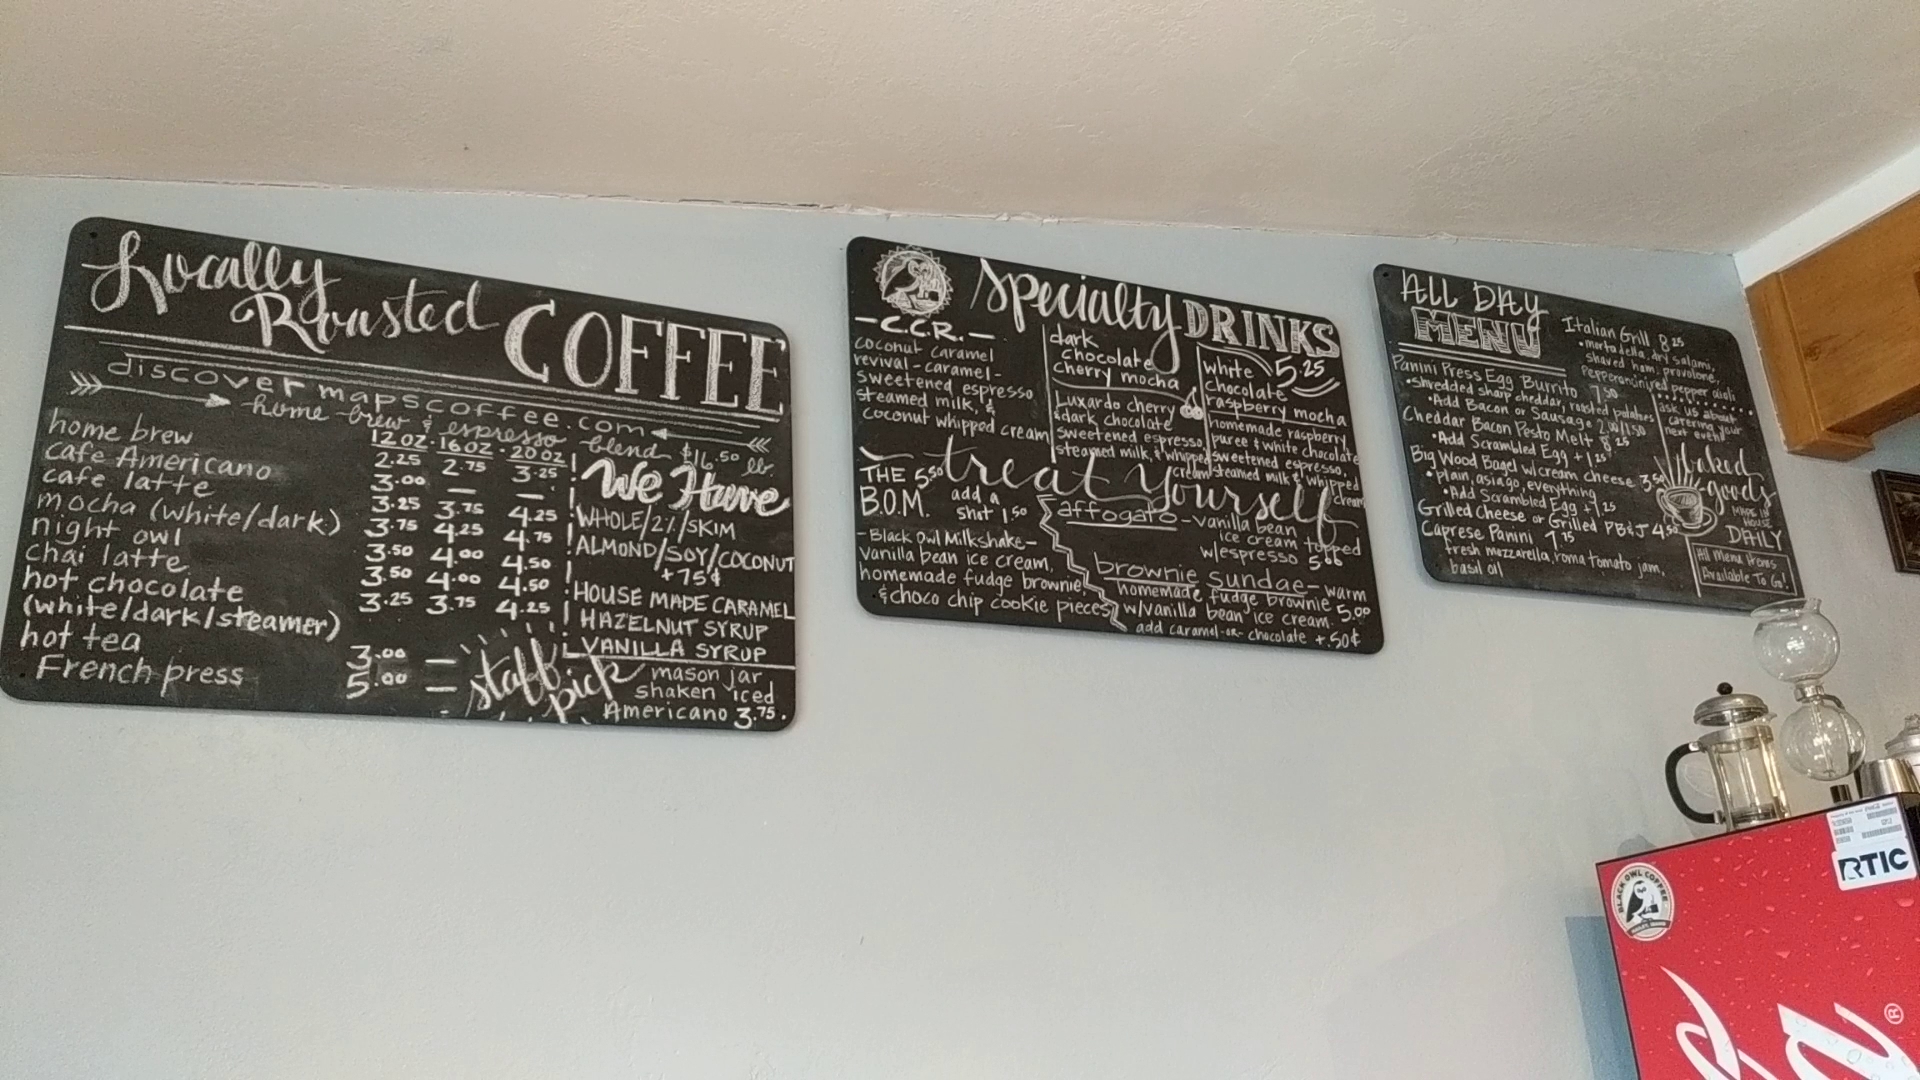 Locally
Roasted COFFEE
discover mapscoffee.com
home brew & espresso blend $16.50 lb.
12 OZ · 16 OZ · 20 OZ
home brew 2.25 2.75 3.25
cafe Americano 3.00 — —
cafe latte 3.25 3.75 4.25
mocha (white/dark) 3.75 4.25 4.75
night owl 3.50 4.00 4.50
chai latte 3.50 4.00 4.50
hot chocolate 3.25 3.75 4.25
(white/dark/steamer)
hot tea 3.00 —
French press 5.00 —
We Have
WHOLE/2%/SKIM
ALMOND/SOY/COCONUT
+75¢
HOUSE MADE CARAMEL
HAZELNUT SYRUP
VANILLA SYRUP
staff
pick
mason jar
shaken iced
Americano 3.75.
Specialty DRINKS
5.25
-C.C.R.-
coconut caramel
revival-caramel-
sweetened espresso
steamed milk, &
coconut whipped cream
dark
chocolate
cherry mocha
Luxardo cherry
& dark chocolate
sweetened espresso,
steamed milk, & whipped
cream
white
chocolate
raspberry mocha
homemade raspberry
puree & white chocolate
sweetened espresso,
steamed milk & whipped
cream
treat yourself
THE 5.50
B.O.M.
add a
shot 1.50
-Black Owl Milkshake-
vanilla bean ice cream,
homemade fudge brownie,
& choco chip cookie pieces
affogato - vanilla bean
ice cream topped
w/espresso 5.00
brownie sundae - warm
homemade fudge brownie
w/vanilla bean ice cream. 5.00
add caramel -or- chocolate +.50¢
ALL DAY
MENU
Panini Press Egg Burrito 7.50
• shredded sharp cheddar, roasted potatoes
• Add Bacon or Sausage 2.00/1.50
Cheddar Bacon Pesto Melt 8.25
• Add Scrambled Egg +1.25
Big Wood Bagel w/cream cheese 3.50
• plain, asiago, everything
• Add Scrambled Egg +1.25
Grilled Cheese or Grilled PB&J 4.50
Caprese Panini 7.75
fresh mozzarella, roma tomato jam,
basil oil
Italian Grill 8.25
• mortadella, dry salami,
shaved ham, provolone,
pepperoncini, red pepper aioli
ask us about
catering your
next event!
baked
goods
MADE IN
HOUSE
DAILY
All Menu Items
Available To Go!
RTIC
BLACK OWL COFFEE
®